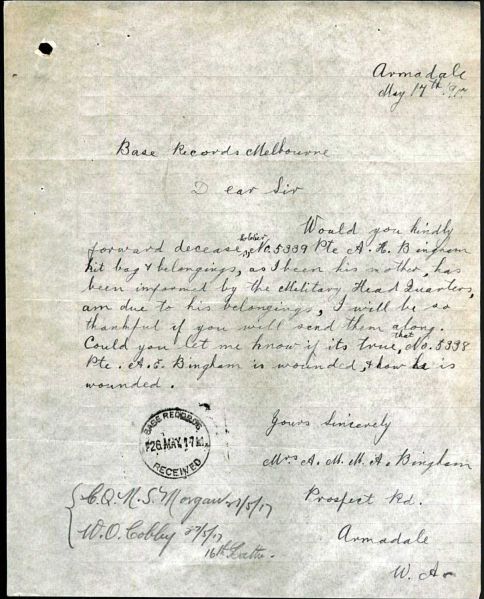 Armadale
May 17th
Base Records Melbourne
Dear Sir
Would you kindly
forward decease soldier No. 5339 Pte A. H. Bingham
kit bag & belongings, as I been his mother, has
been informed by the Military Head Quarters,
am due to his belongings, I will be so
thankful if you will send them along.
Could you let me know if its true, that No. 5338
Pte. A. E. Bingham is wounded, & how he is
wounded.
Yours Sincerely
Mrs A. M. M. A. Bingham
Prospect Rd.
Armadale
W. A.
BASE RECORDS
26 MAY 17
RECEIVED
C.Q.M.S. Morgan 27/5/17
W.O. Cobley 27/5/17
16th Battn.